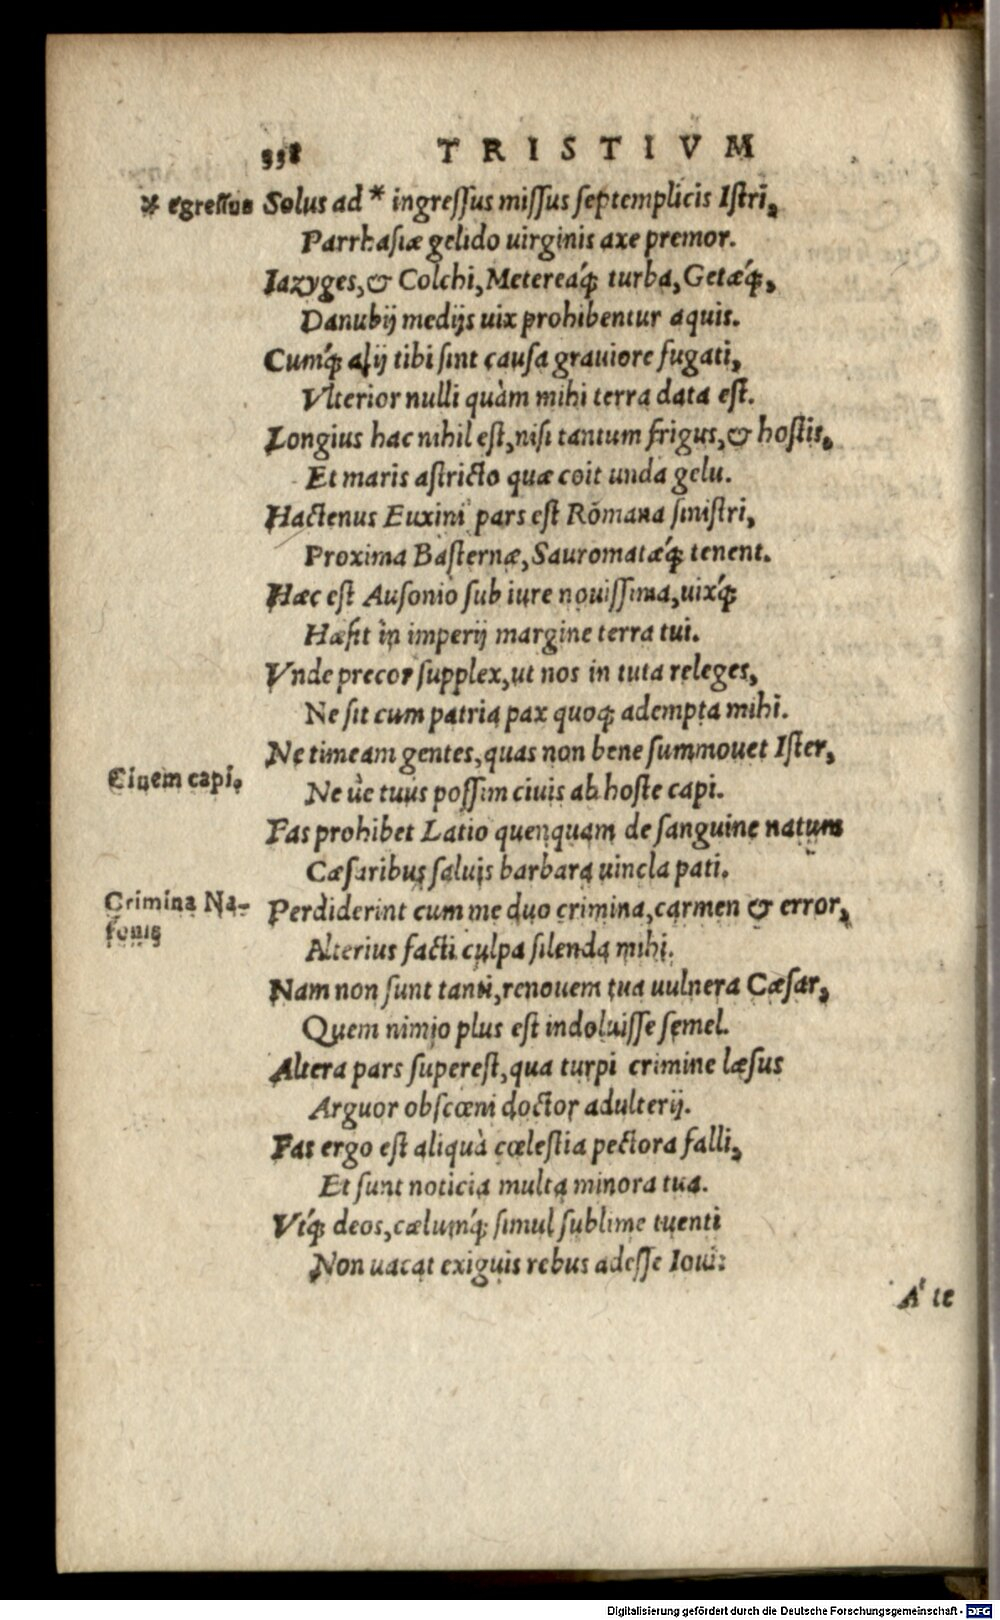 338 TRISTIVM
* egressus Solus ad * ingressus missus septemplicis Istri,
Parrhasiæ gelido uirginis axe premor.
Iazyges, & Colchi, Metereaq́; turba, Getæq́;,
Danubij medijs uix prohibentur aquis.
Cumq́; alij tibi sint causa grauiore fugati,
Vlterior nulli quàm mihi terra data est.
Longius hac nihil est, nisi tantum frigus, & hostis,
Et maris astricto quæ coit unda gelu.
Hactenus Euxini pars est Romana sinistri,
Proxima Basternæ, Sauromatæq́; tenent.
Hæc est Ausonio sub iure nouissima, uixq́;
Hæsit in imperij margine terra tui.
Vnde precor supplex, ut nos in tuta releges,
Ne sit cum patria pax quoq; adempta mihi.
Ne timeam gentes, quas non bene summouet Ister,
Ciuem capi.
Ne ùe tuus possim ciuis ab hoste capi.
Fas prohibet Latio quenquam de sanguine natum
Cæsaribus saluis barbara uincla pati.
Crimina Na-
sonis
Perdiderint cum me duo crimina, carmen & error,
Alterius facti culpa silenda mihi.
Nam non sunt tanti, renouem tua uulnera Cæsar,
Quem nimio plus est indoluisse semel.
Altera pars superest, qua turpi crimine læsus
Arguor obscœni doctor adulterij.
Fas ergo est aliquà cœlestia pectora falli,
Et sunt noticia multa minora tua.
Vtq́; deos, cælumq́; simul sublime tuenti
Non uacat exiguis rebus adesse Ioui:
A' te
Digitalisierung gefördert durch die Deutsche Forschungsgemeinschaft - DFG